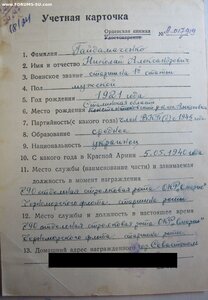 WWW.FORUMS-SU.COM
Учетная карточка
Орденская книжка
Удостоверение
1. Фамилия Гайдамаченко
2. Имя и отчество Николай Александрович
3. Воинское звание старшина 1й статьи
4. Пол мужской
5. Год рождения 1921 года
6. Место рождения
7. Партийность (с какого года) член ВКП(б) с 1946 года
8. Образование среднее
9. Национальность украинец
10. С какого года в Красной Армии 5.05.1940 года
11. Место службы (наименование части) и занимаемая
должность в момент награждения
Черноморского флота старшина роты
12. Место службы и должность в настоящее время
Черноморского флота старшина роты
13. Домашний адрес награжденного гор. Севастополь